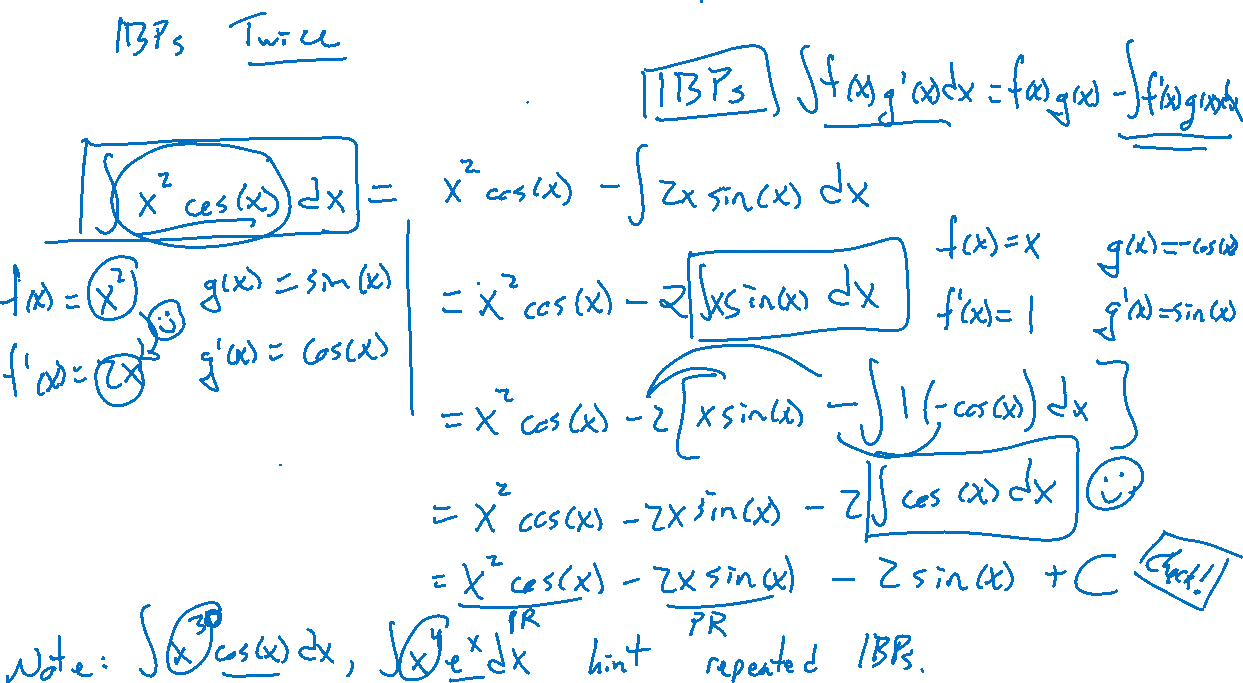 IBPs Twice
IBPs ∫f(x)g'(x)dx = f(x)g(x) - ∫f'(x)g(x)dx
∫ x² cos(x) dx = x² cos(x) - ∫ 2x sin(x) dx
f(x) = x² g(x) = sin(x)
f'(x) = 2x g'(x) = cos(x)
f(x) = x g(x) = -cos(x)
f'(x) = 1 g'(x) = sin(x)
= x² cos(x) - 2 ∫xsin(x) dx
= x² cos(x) - 2[x sin(x) - ∫ 1 (-cos(x)) dx]
= x² cos(x) - 2x sin(x) - 2 ∫ cos(x) dx
= x² cos(x) - 2x sin(x) - 2 sin(x) + C Check!
PR PR
Note: ∫ x³⁰ cos(x) dx, ∫ x⁴ eˣ dx hint repeated IBPs.